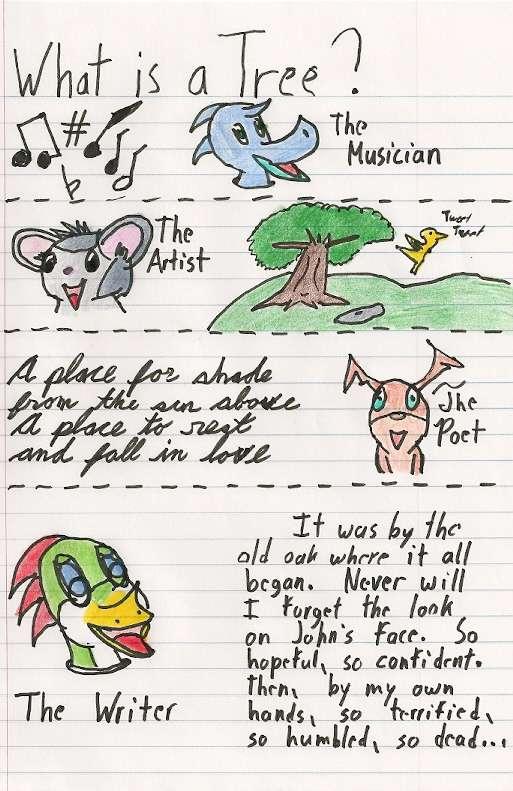 What is a Tree?
The
Musician
The
Artist
Tweet
Tweet
A place for shade
from the sun above
A place to rest
and fall in love
The
Poet
It was by the
old oak where it all
began. Never will
I forget the look
on John's face. So
hopeful, so confident.
Then, by my own
hands, so terrified,
so humbled, so dead...
The Writer